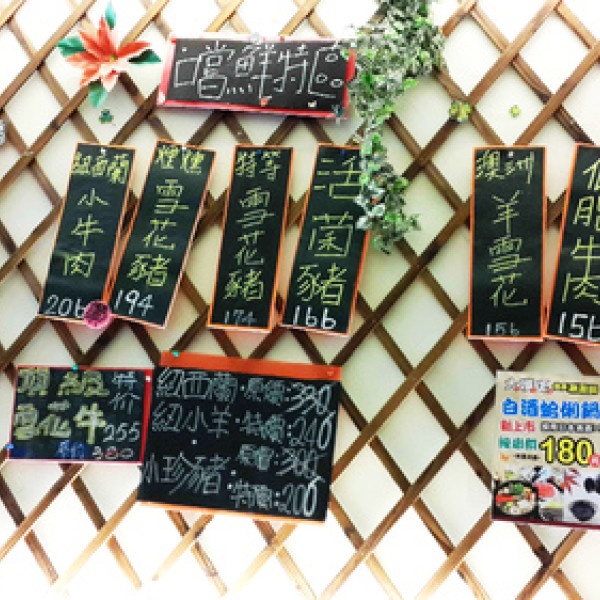 嚐鮮特區
紐西蘭
小牛肉
206
煙燻
雪花豬
194
特等
雪花豬
174
活菌豬
166
澳洲
羊雪花
156
低脂牛肉
156
頂級
雪花牛
特价
255
380
紐西蘭·原價:380
紐小羊·特價:246
小珍豬·原價:300
特價:206
白酒蛤蜊鍋
新上市
180